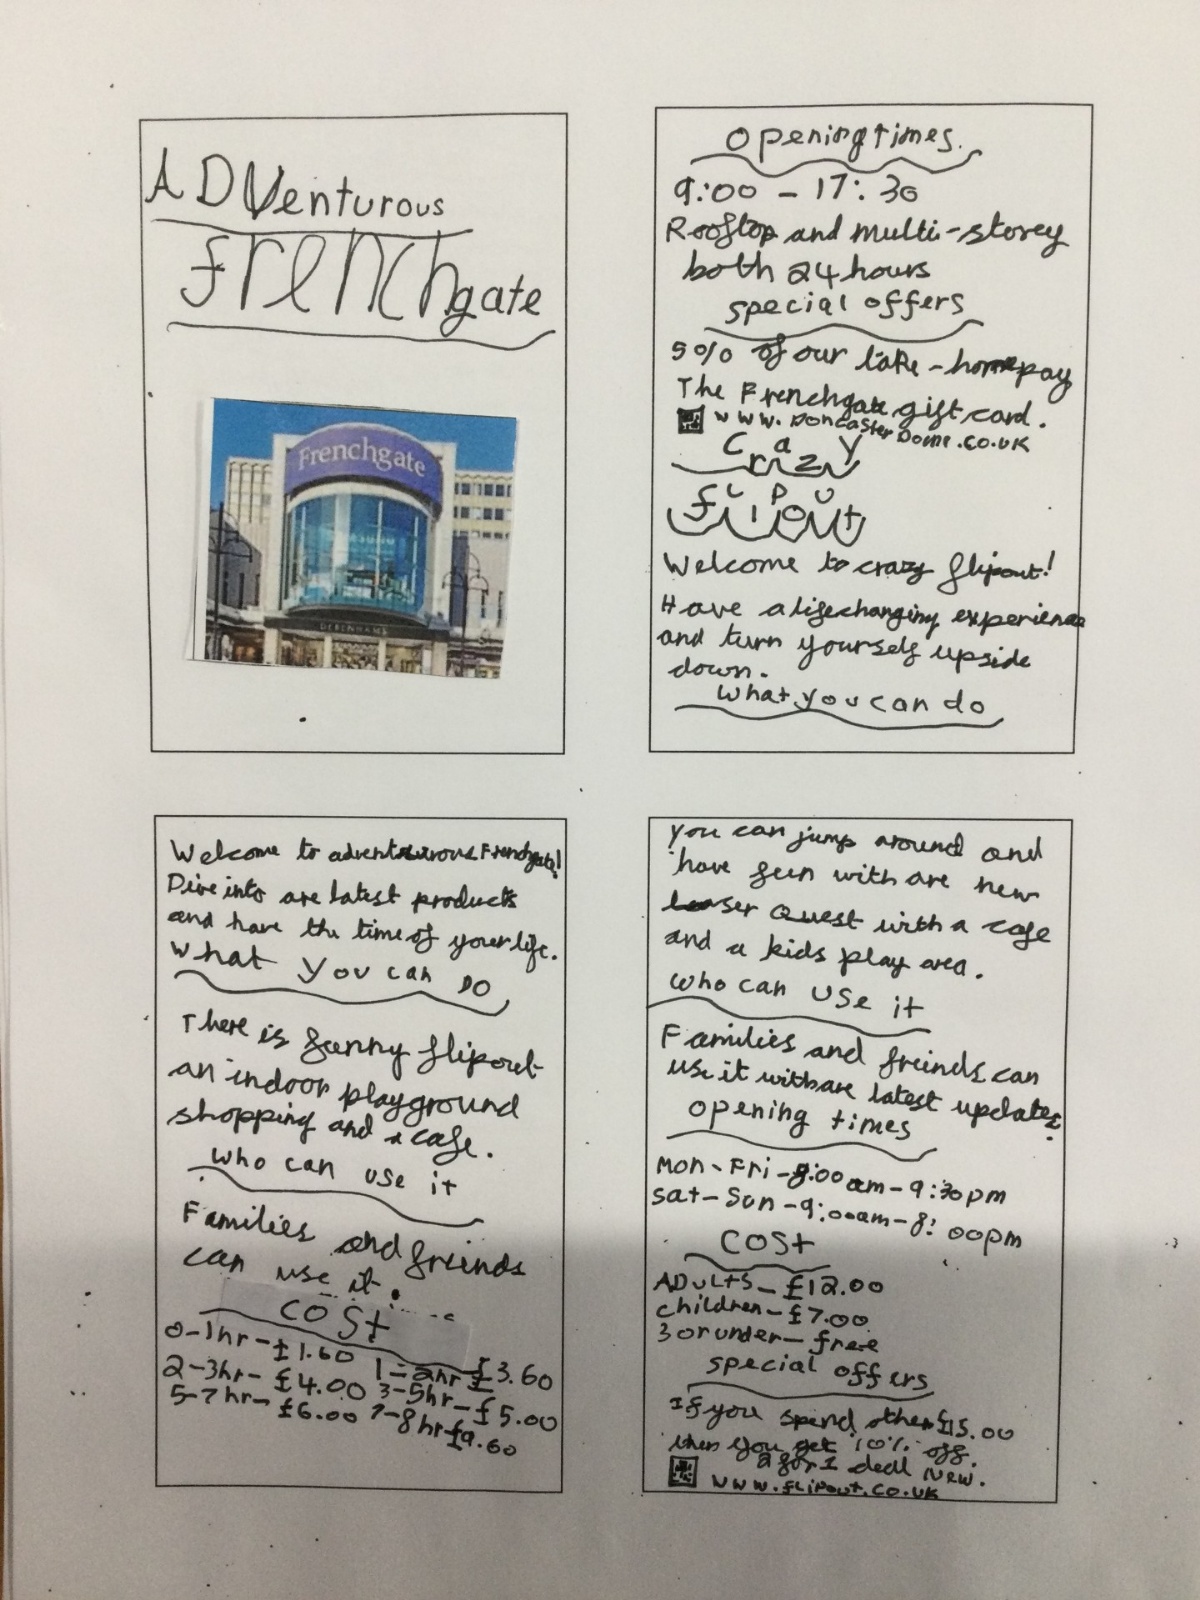 ADVenturous
frenchgate
Frenchgate
DEBENHAMS
Opening times.
9:00 - 17:30
Rooftop and multi-storey
both 24 hours
special offers
5% of our take-home pay
The Frenchgate gift card.
www.DoncasterDome.co.uk
Crazy
flipout
Welcome to crazy flipout!
Have a lifechanging experience
and turn yourself upside
down.
What you can do
Welcome to adventurous Frenchgate!
Dive into are latest products
and have the time of your life.
What you can DO
There is funny flipout
an indoor playground
shopping and a cafe.
who can use it
Families and freinds
can use it.
cost
0-1hr-£1.60 1-2hr £3.60
2-3hr-£4.00 3-5hr-£5.00
5-7hr-£6.00 7-8hr-£9.60
you can jump around and
have fun with are new
laser quest with a cafe
and a kids play area.
who can use it
Families and freinds can
use it with are latest updates.
opening times
Mon-Fri-9:00am-9:30pm
Sat-Sun-9:00am-8:00pm
COST
ADULTS-£12.00
children-£7.00
3 or under-free
special offers
If you spend other £15.00
then you get 10% off.
2 for 1 deal New.
www.flipout.co.uk